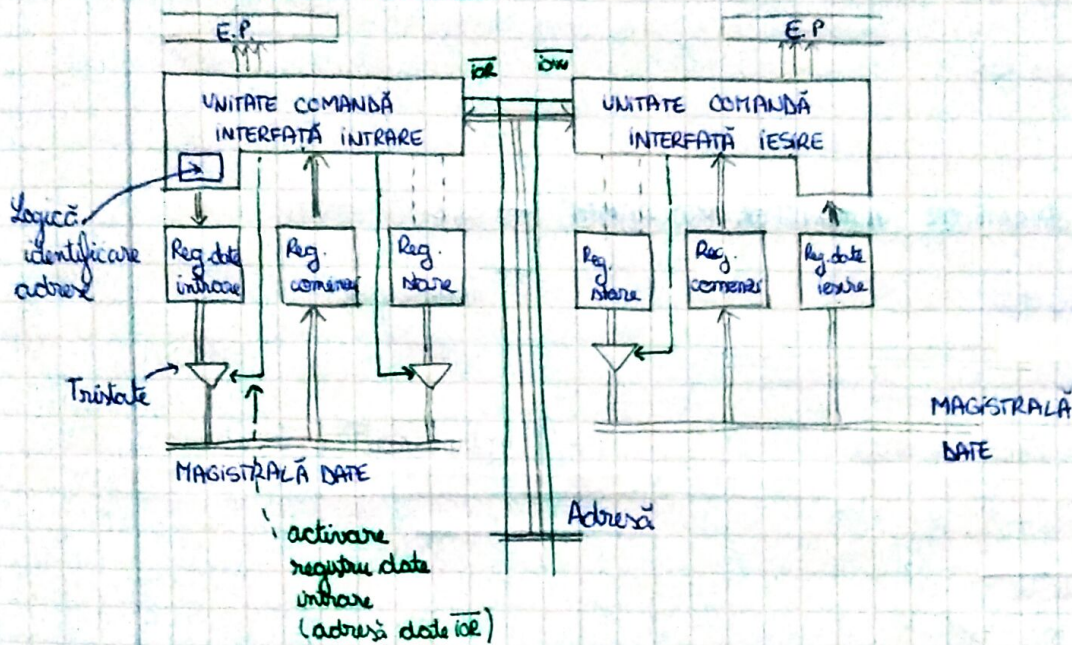 E.P.
E.P
IOR
IOW
UNITATE COMANDĂ
INTERFAȚĂ INTRARE
UNITATE COMANDĂ
INTERFAȚĂ IESIRE
Logică
identificare
adrese
Reg. date
intrare
Reg.
comenzi
Reg.
stare
Reg.
stare
Reg.
comenzi
Reg. date
iesire
Tristate
MAGISTRALĂ DATE
MAGISTRALĂ
DATE
Adresă
activare
registru date
intrare
(adresă date IOR)